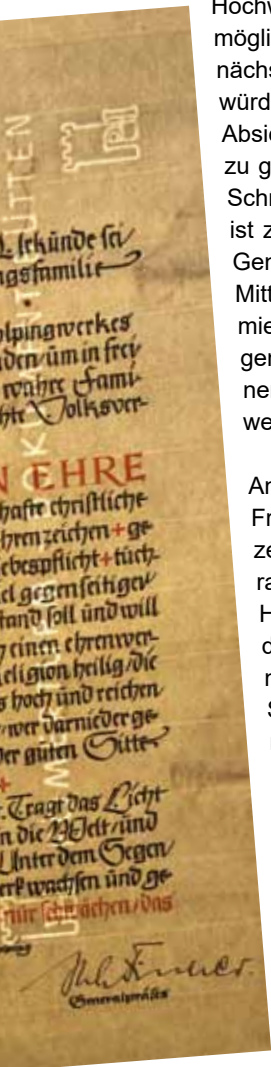 künde sei
ngsfamilie
lpingwerkes
den/um in frey
wahre Fami-
hte Volksver-
N EHRE
hafte christliche
hrenzeichen + ge
ebespflicht + tüch-
el gegenseitiger
tand soll und will
einen ehrenwer-
eligion heilig/die
s hoch und reichen
wer darnieder ge-
er guten Sitte
+
. Tragt das Licht
n die Welt/und
Unter dem Segen/
erk wachsen und ge
nur schwächen/das
Generalpräses
Hochw
möglic
nächs
würd
Absic
zu g
Schr
ist z
Gen
Mitt
mie
gen
ne
we
An
Fr
ze
ra
H
d
n
S